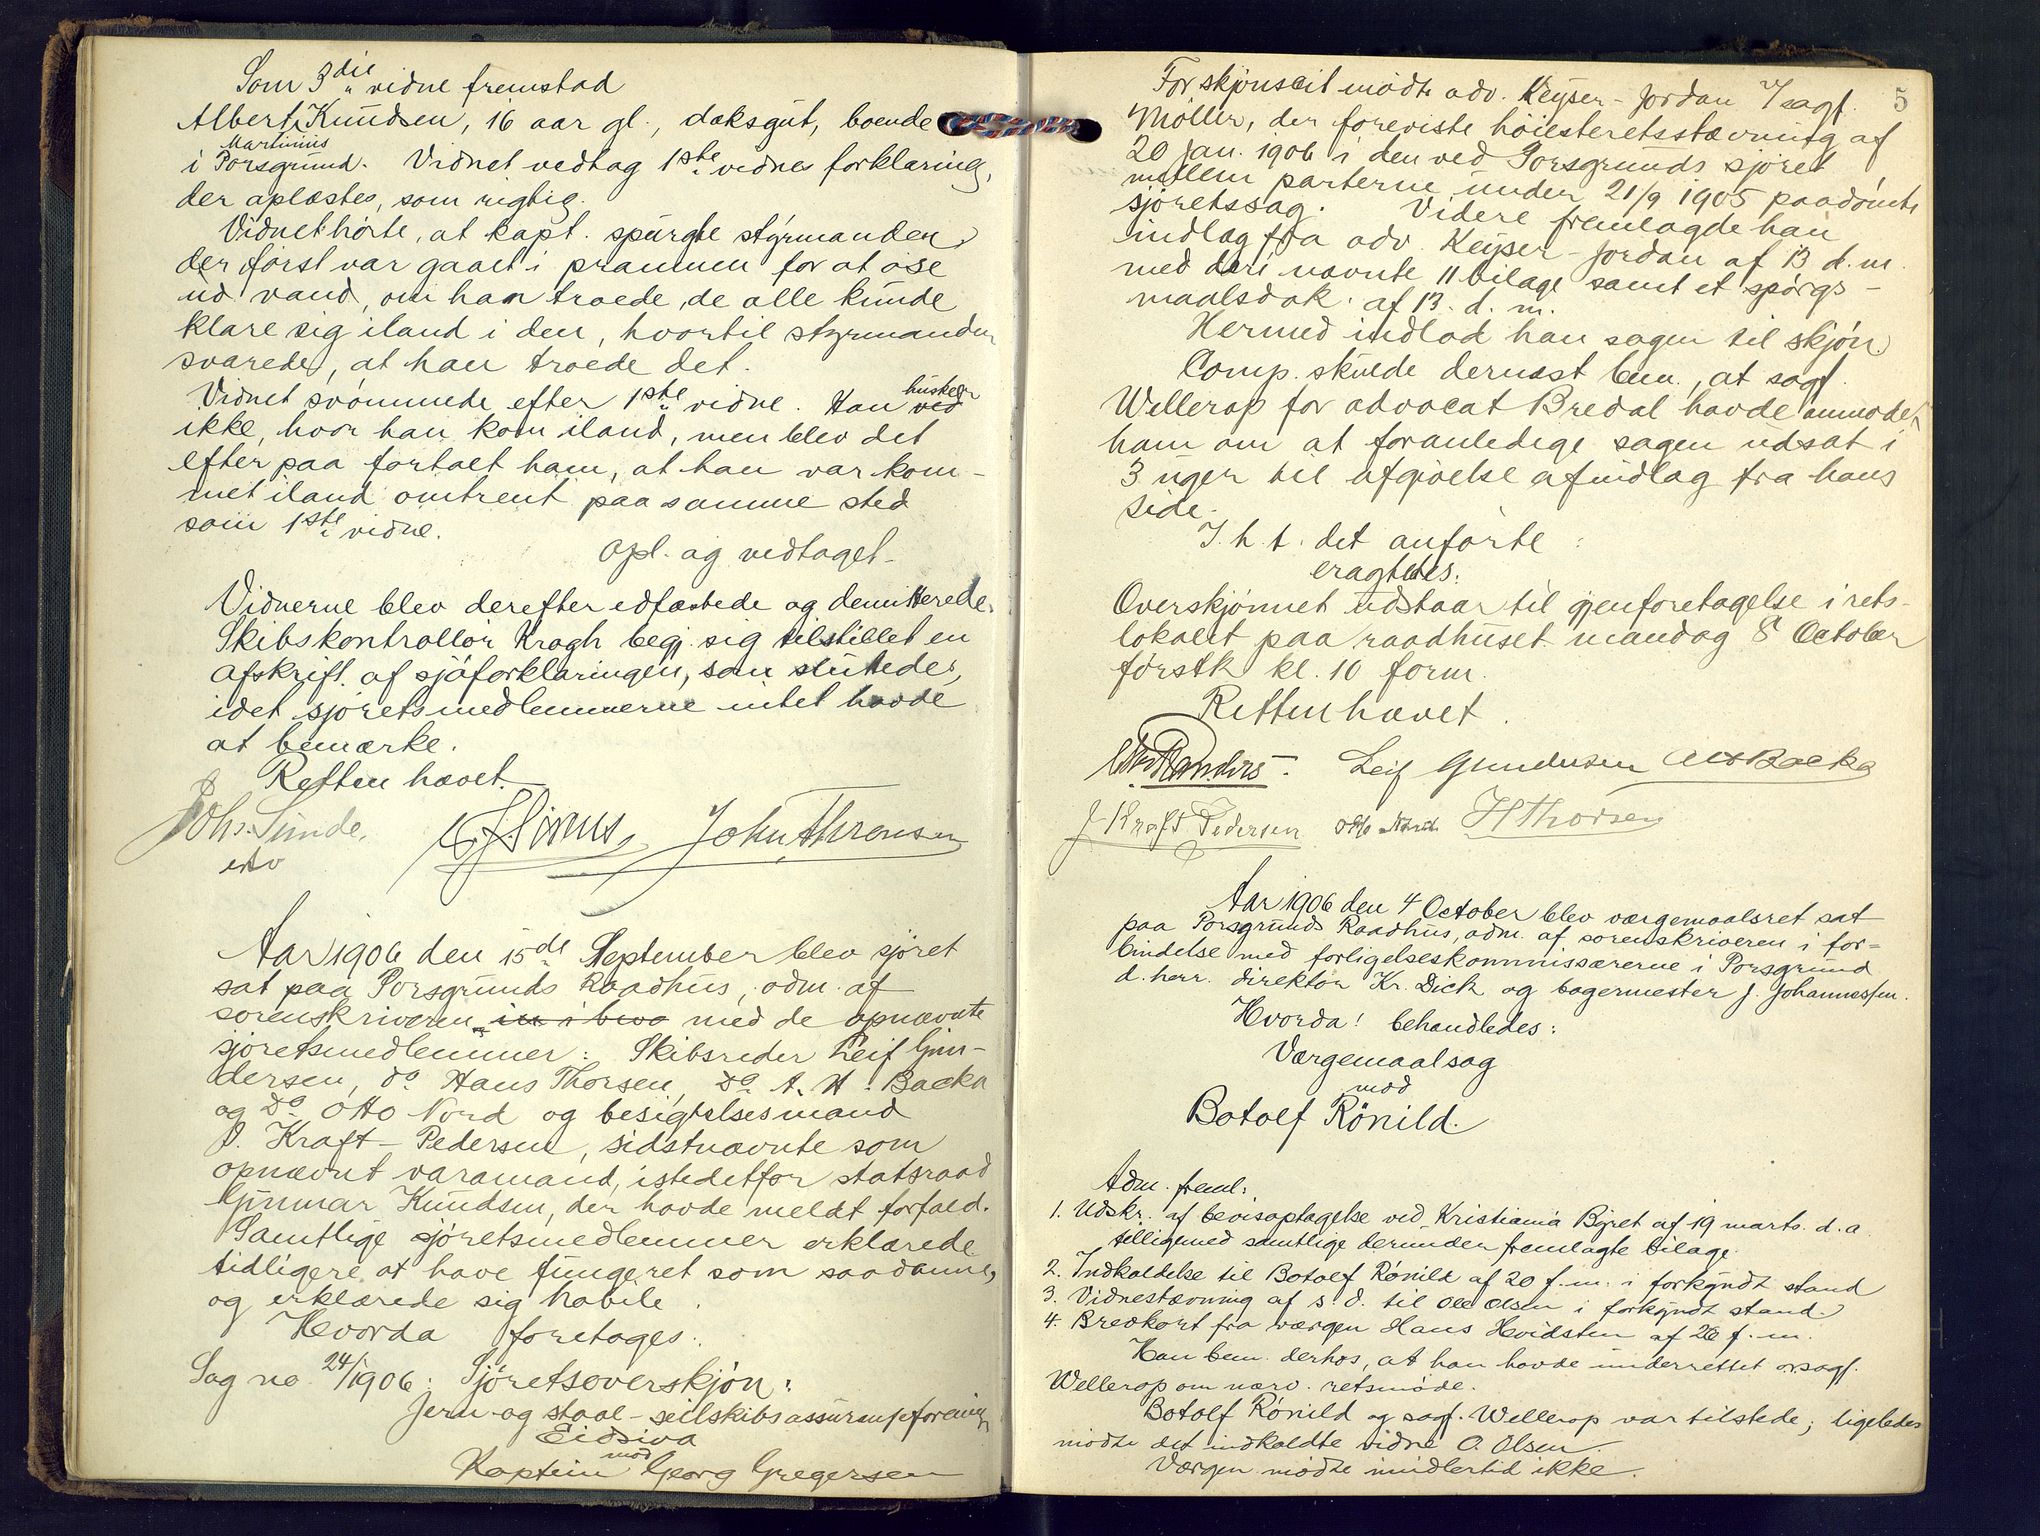 Som 3die vidne fremstod
Albert Knudsen, 16 aar gl., dæksgut, boende
Martinius
i Porsgrund. Vidnet vedtog 1ste vidnes forklaring,
der oplæstes, som rigtig.
Vidnet hørte, at kapt. spurgte styrmanden
der først var gaaet i prammen for at øse
ud vand, om han troede, de alle kunde
klare sig iland i den, hvortil styrmanden
svarede, at han troede det.
husker
Vidnet svømmede efter 1ste vidne. Han ved
ikke, hvor han kom iland, men blev det
efter paa fortalt ham, at han var kom-
met iland omtrent paa samme sted
som 1ste vidne.
Opl. og vedtaget.
Vidnerne blev derefter edfæstede og demitterede.
Skibskontrollør Kragh begj. sig tilstillet en
afskrift af sjøforklaringen, som sluttedes,
idet sjøretsmedlemmerne intet havde
at bemærke.
Retten hævet.
Johs. Sunde,
John Thronsen
Aar 1906 den 15de September blev sjøret
sat paa Porsgrunds Raadhus, adm. af
sorenskriveren med de opnævnte
sjøretsmedlemmer: Skibsreder Leif Gun-
dersen, do Hans Thorsen, Do A. H. Backa
og Do Otto Nord og besigtelsesmand
J. Kraft-Pedersen, sidstnævnte som
opnævnt varamand istedetfor statsraad
Gunnar Knudsen, der havde meldt forfald.
Samtlige sjøretsmedlemmer erklærede
tidligere at have fungeret som saadanne,
og erklærede sig habile.
Hvorda foretages:
Sag no 24/1906: Sjøretsoverskjøn:
Jern- og staal-seilskibsassuranseforening
Eidsiva
mod
Kaptein Georg Gregersen
5
For skjønscit. mødte adv. Keyser-Jordan v/sagf.
Møller, der foreviste høiesteretsstævning af
20 jan. 1906 i den ved Porsgrunds sjøret
mellem parterne under 21/9 1905 paadømte
sjøretssag. Videre fremlagde han
indlæg fra adv. Keyser-Jordan af 13 d.m.
med deri nævnte 11 bilage samt et spørgs-
maalsdok. af 13. d. m.
Hermed indlod han sagen til skjøn.
Comp. skulde dernæst bem., at sagf.
Wellerop for advocat Bredal havde anmodet
ham om at foranledige sagen udsat i
3 uger til afgivelse af indlæg fra hans
side.
I. h. t. det anførte:
eragtedes:
Overskjønnet udstaar til gjenforetagelse i rets-
lokalet paa raadhuset mandag 8 October
førstk kl. 10 form.
Retten hævet.
Leif Gundersen AHBacka
J Kraft Pedersen Otto Nord H Thorsen
Aar 1906 den 4 October blev værgemaalsret sat
paa Porsgrunds Raadhus, adm. af sorenskriveren i for-
bindelse med forligelseskommissærerne i Porsgrund
d. herr. direktør Kr. Dick og bagermester J. Johannessen.
Hvorda! behandledes:
Værgemaalsag
mod
Botolf Rönild.
Adm. freml:
1. Udskr. af bevisoptagelse ved Kristiania Byret af 19 marts. d. a
tilligemed samtlige derunder fremlagte bilage.
2. Indkaldelse til Botolf Rönild af 20 f. m. i forkyndt stand
3. Vidnestævning af s. d. til Ole Olsen i forkyndt stand.
4. Brevkort fra værgen Hans Hvidsten af 26 f. m.
Han bem. derhos, at han havde underrettet orsagf.
Wellerop om nærv. retsmøde.
Botolf Rönild og sagf. Wellerop var tilstede; ligeledes
mødte det indkaldte vidne O. Olsen.
Værgen mødte imidlertid ikke.